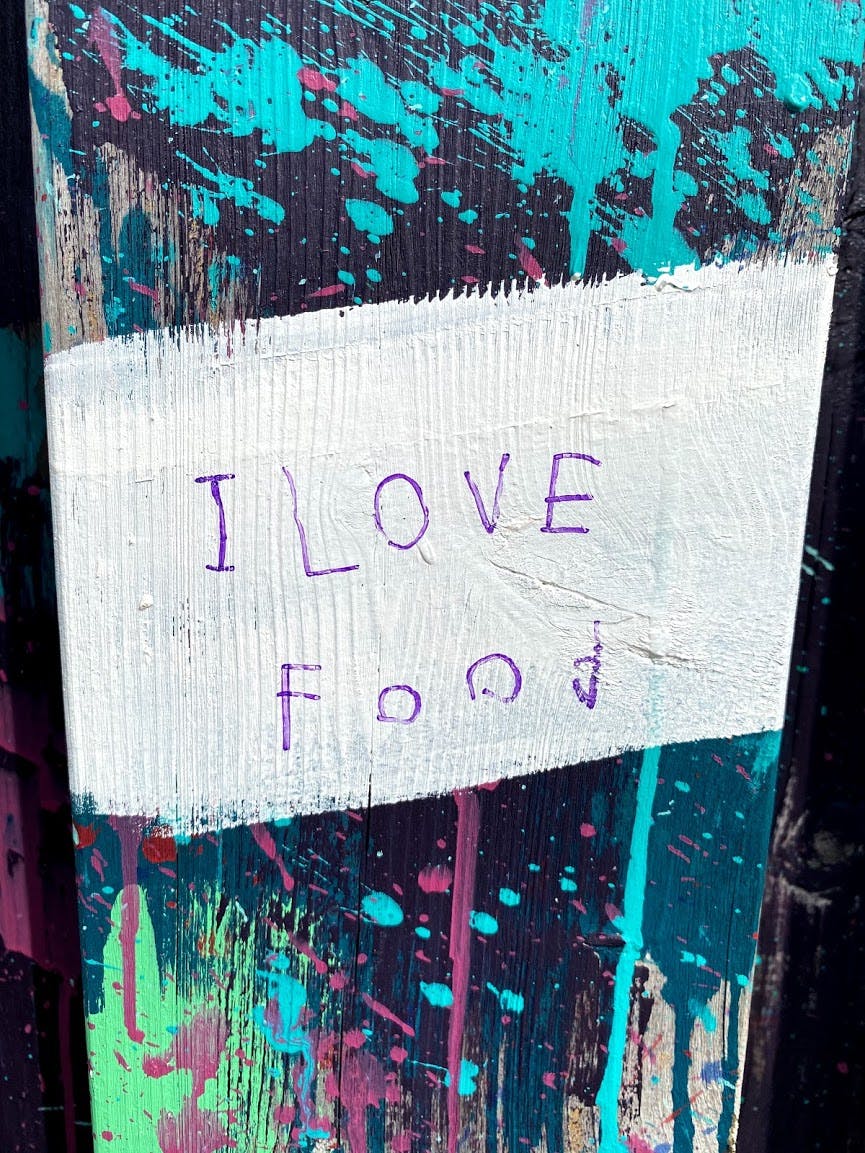 I LOVE
FOOd